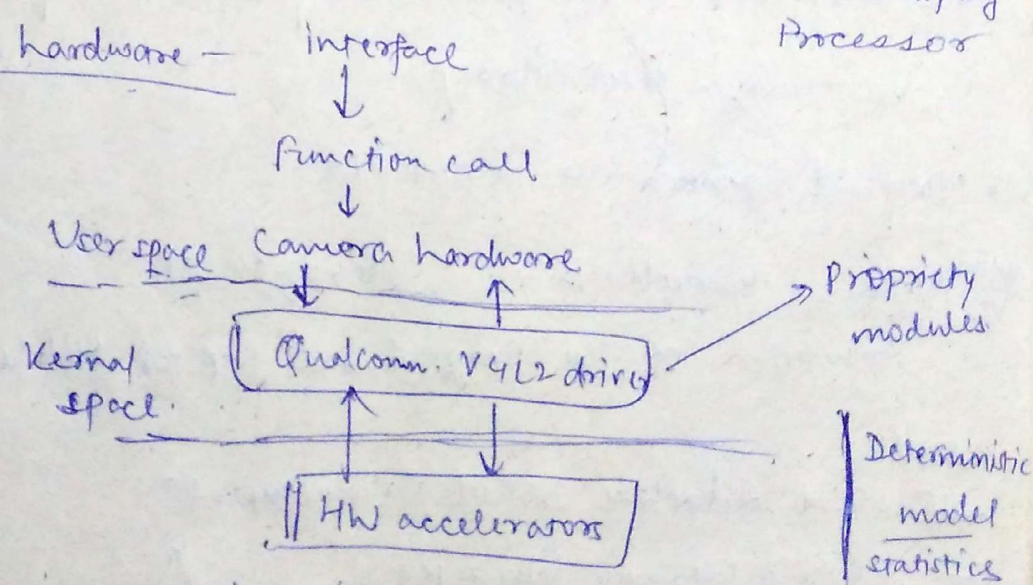 hardware - interface
Processor
function call
User space Camera hardware
Propriety
modules
Kernal
space.
Qualcomm. V4L2 driver
HW accelerators
Deterministic
model
statistics